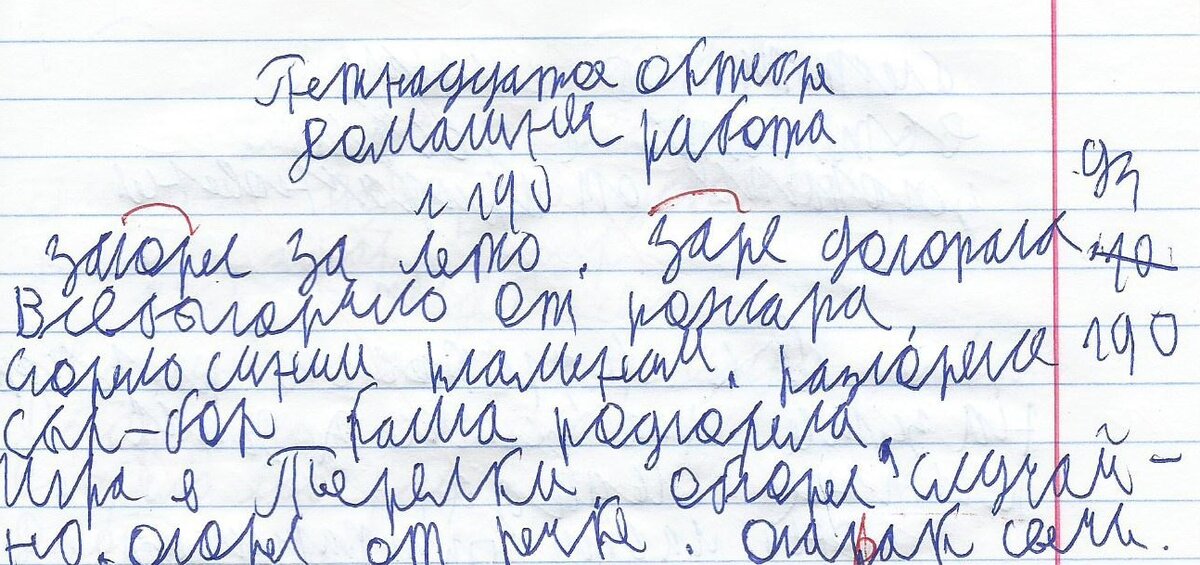 Петнадцатое октебре
домашняя работа
загорел за лето. заре догорала
Всё выгорило от пожара.
сгорело синим пламеним. разгорелсе
сыр-бор каша подгорела.
Игра в Гюрелки. обгорел случай-
но. огорел от речке. огарак свечи.
дз
190